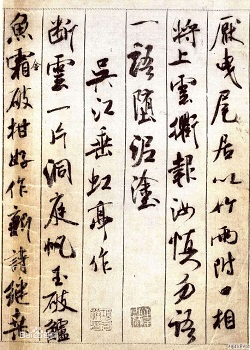 厭曳尾居以竹兩附口相
將上雲衢報汝慎勿語
一語墮泥塗
吳江垂虹亭作
斷雲一片洞庭帆玉破鱸
魚霜金破柑好作新詩繼桑